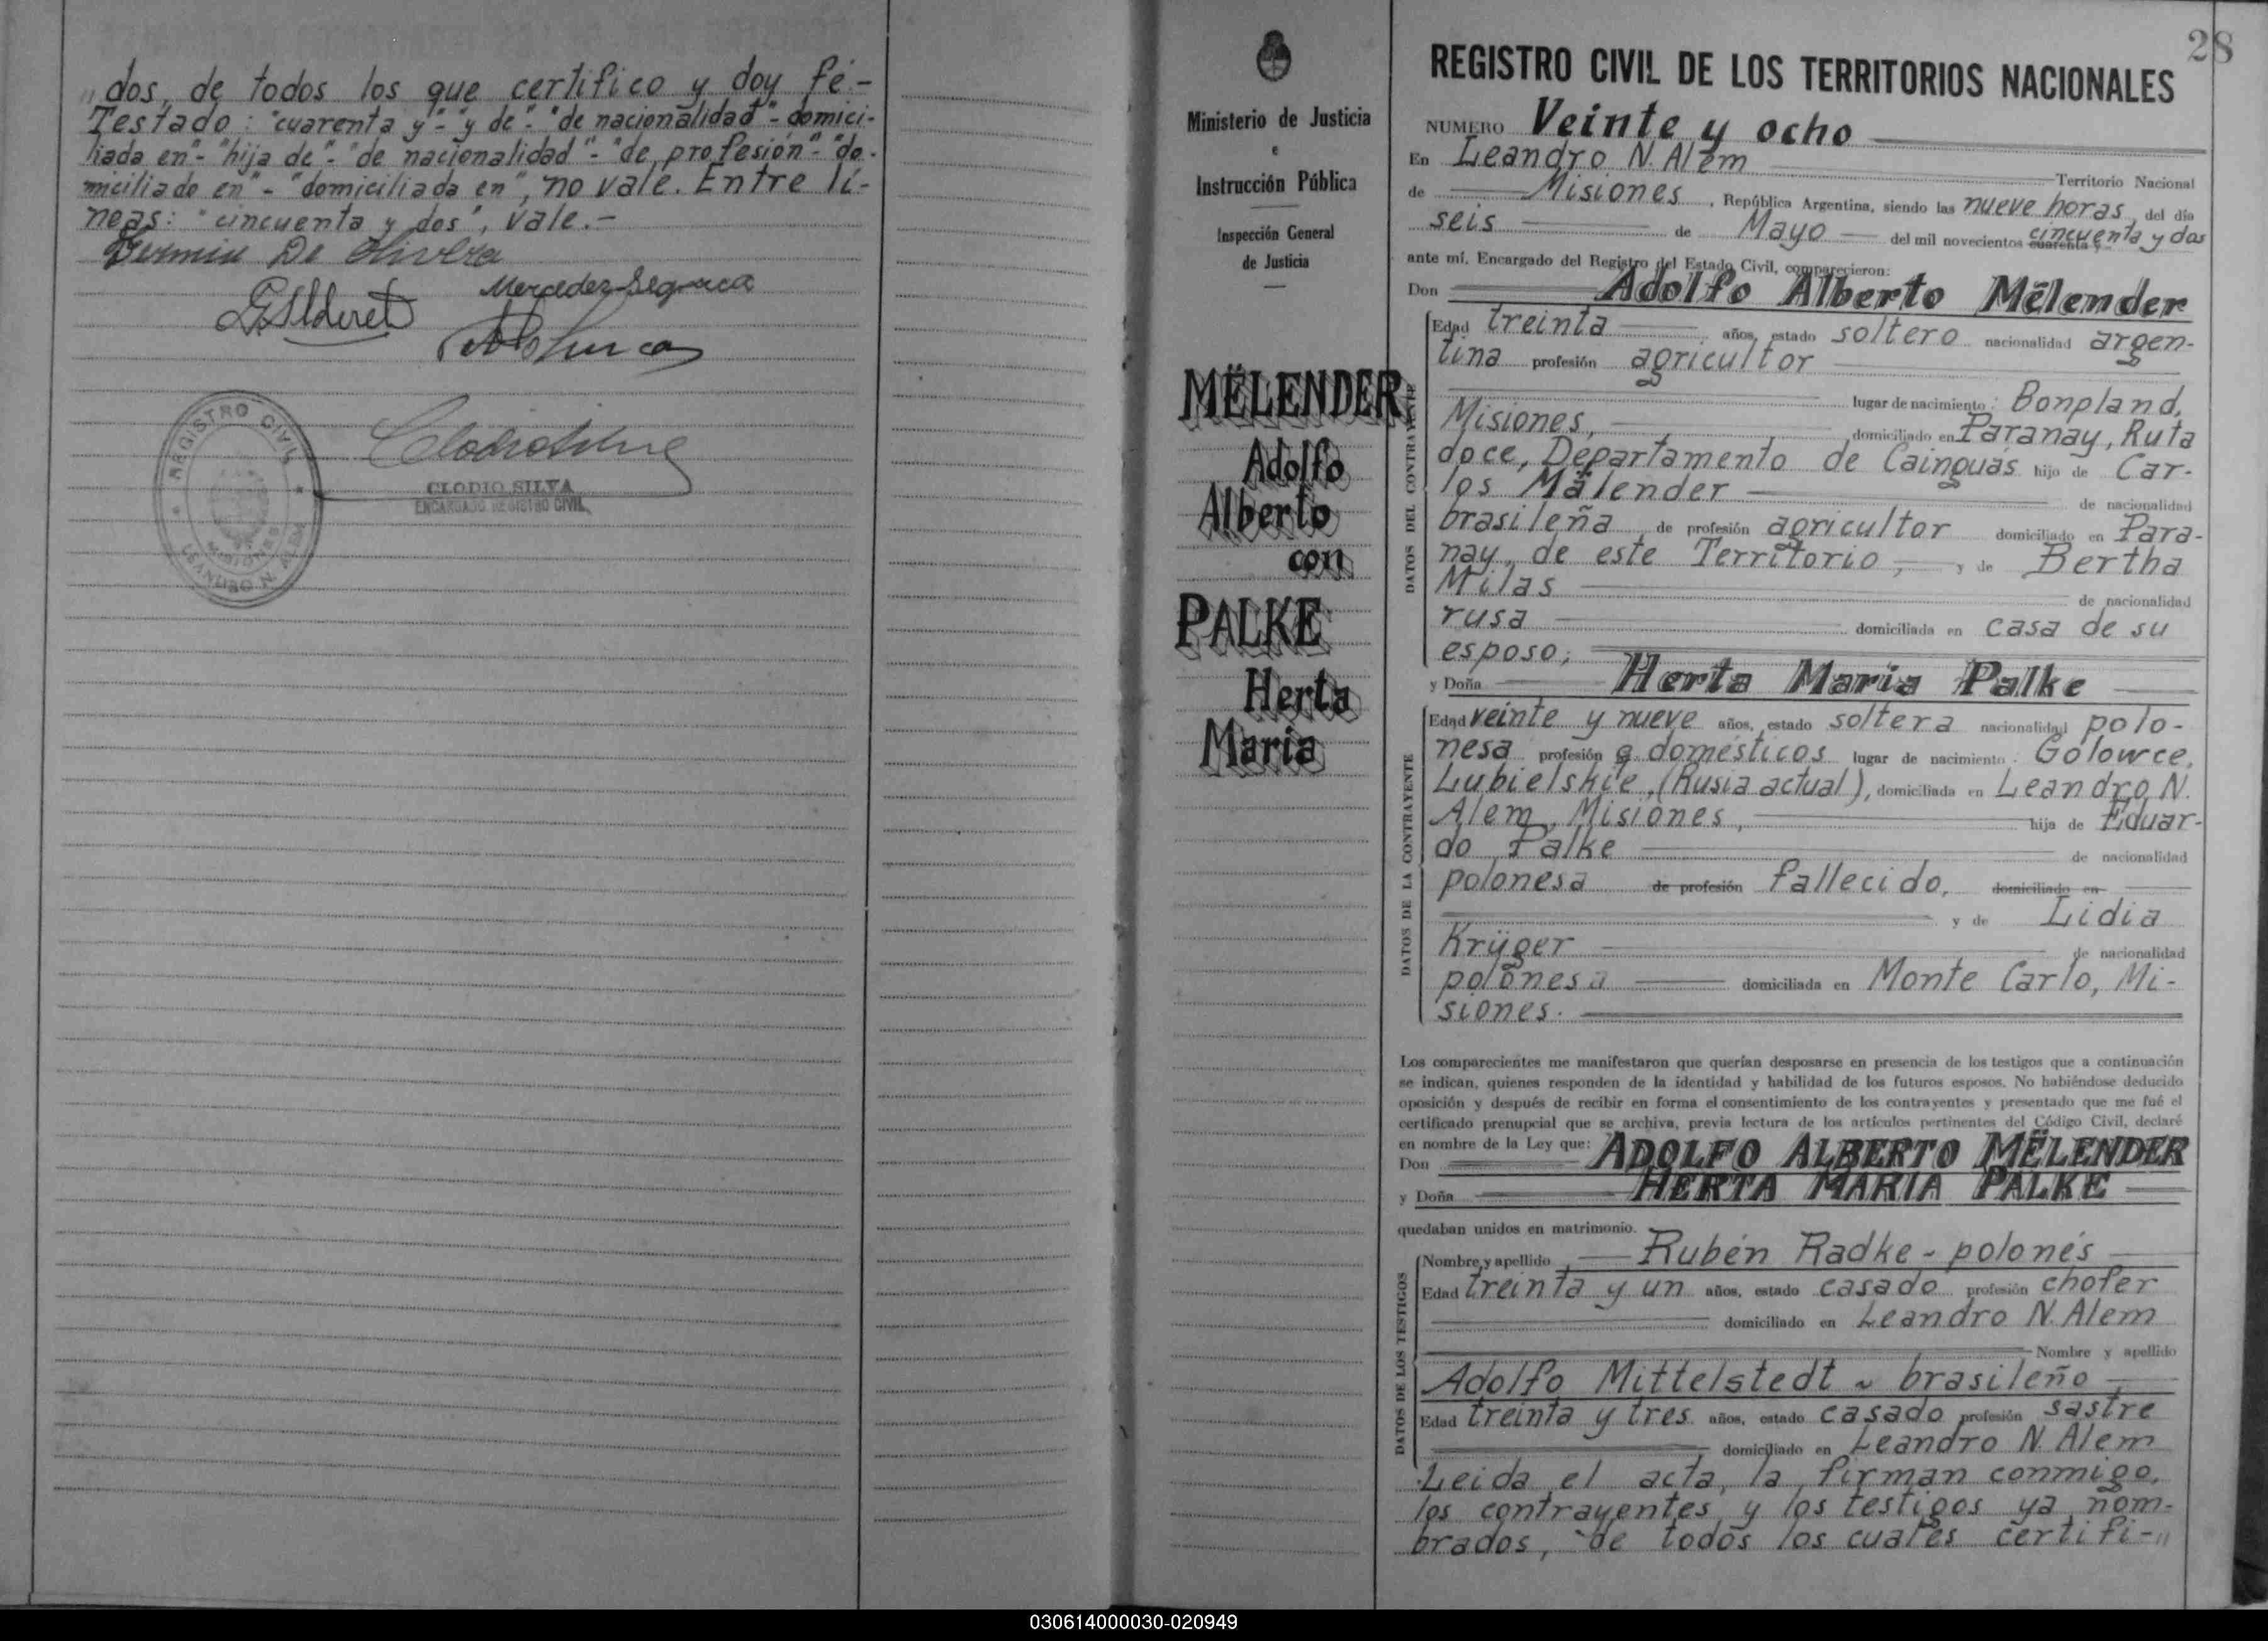 dos, de todos los que certifico y doy fé.-
Testado: "cuarenta y"- "y de"- "de nacionalidad"- domici-
liada en"- "hija de"- "de nacionalidad"- "de profesión"- "do-
miciliado en"- "domiciliada en", no vale. Entre lí-
neas: "cincuenta y dos", vale.-
Fermin De Olivera
Mercedes Segovia
REGISTRO CIVIL
MISIONES
LEANDRO N. ALEM
CLODIO SILVA
ENCARGADO REGISTRO CIVIL
Ministerio de Justicia
e
Instrucción Pública
Inspección General
de Justicia
MËLENDER
Adolfo
Alberto
con
PALKE
Herta
Maria
28
REGISTRO CIVIL DE LOS TERRITORIOS NACIONALES
NUMERO Veinte y ocho
En Leandro N. Alem Territorio Nacional
de Misiones, República Argentina, siendo las nueve horas del día
seis de Mayo del mil novecientos cuarenta y cincuenta y dos
ante mí, Encargado del Registro del Estado Civil, comparecieron:
Don Adolfo Alberto Mëlender
DATOS DEL CONTRAYENTE
Edad treinta años, estado soltero nacionalidad argen-
tina profesión agricultor
lugar de nacimiento: Bonpland,
Misiones, domiciliado en Paranay, Ruta
doce, Departamento de Cainguás hijo de Car-
los Mälender de nacionalidad
brasileña de profesión agricultor domiciliado en Para-
nay, de este Territorio, y de Bertha
Milas de nacionalidad
rusa domiciliada en casa de su
esposo;
y Doña Herta Maria Palke
DATOS DE LA CONTRAYENTE
Edad veinte y nueve años, estado soltera nacionalidad polo-
nesa profesión q. domésticos lugar de nacimiento: Golowce,
Lubielskie, (Rusia actual), domiciliada en Leandro N.
Alem, Misiones, hija de Eduar-
do Palke de nacionalidad
polonesa de profesión fallecido, domiciliado en
y de Lidia
Krüger de nacionalidad
polonesa domiciliada en Monte Carlo, Mi-
siones.
Los comparecientes me manifestaron que querían desposarse en presencia de los testigos que a continuación
se indican, quienes responden de la identidad y habilidad de los futuros esposos. No habiéndose deducido
oposición y después de recibir en forma el consentimiento de los contrayentes y presentado que me fué el
certificado prenupcial que se archiva, previa lectura de los artículos pertinentes del Código Civil, declaré
en nombre de la Ley que:
Don ADOLFO ALBERTO MËLENDER
y Doña HERTA MARIA PALKE
quedaban unidos en matrimonio.
DATOS DE LOS TESTIGOS
Nombre y apellido Rubén Radke - polonés
Edad treinta y un años, estado casado profesión chofer
domiciliado en Leandro N. Alem
Nombre y apellido
Adolfo Mittelstedt - brasileño
Edad treinta y tres años, estado casado profesión sastre
domiciliado en Leandro N. Alem
Leida el acta, la firman conmigo,
los contrayentes y los testigos ya nom-
brados, de todos los cuales certifi-"
030614000030-020949